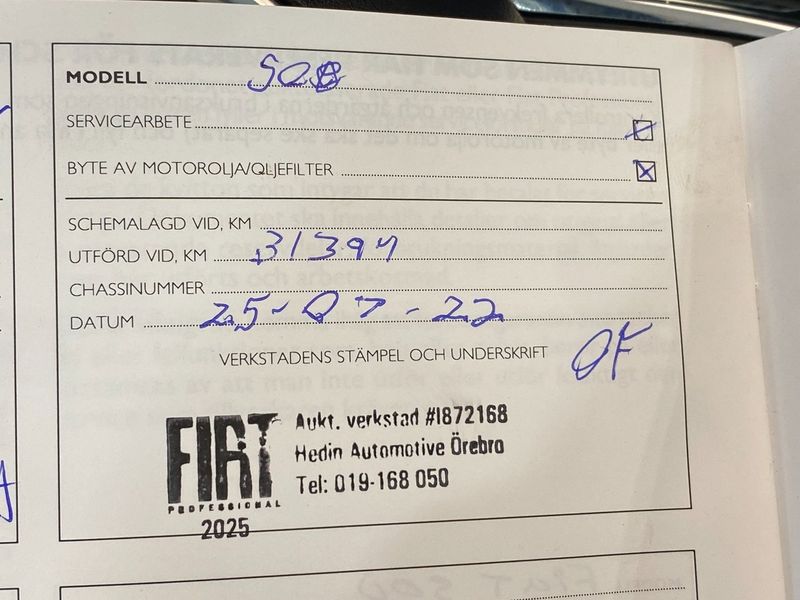 MODELL 500
SERVICEARBETE
BYTE AV MOTOROLJA/OLJEFILTER
SCHEMALAGD VID, KM
UTFÖRD VID, KM 31394
CHASSINUMMER
DATUM 25-07-22
VERKSTADENS STÄMPEL OCH UNDERSKRIFT OF
FIAT
PROFESSIONAL
2025
Aukt. verkstad #I872168
Hedin Automotive Örebro
Tel: 019-168 050